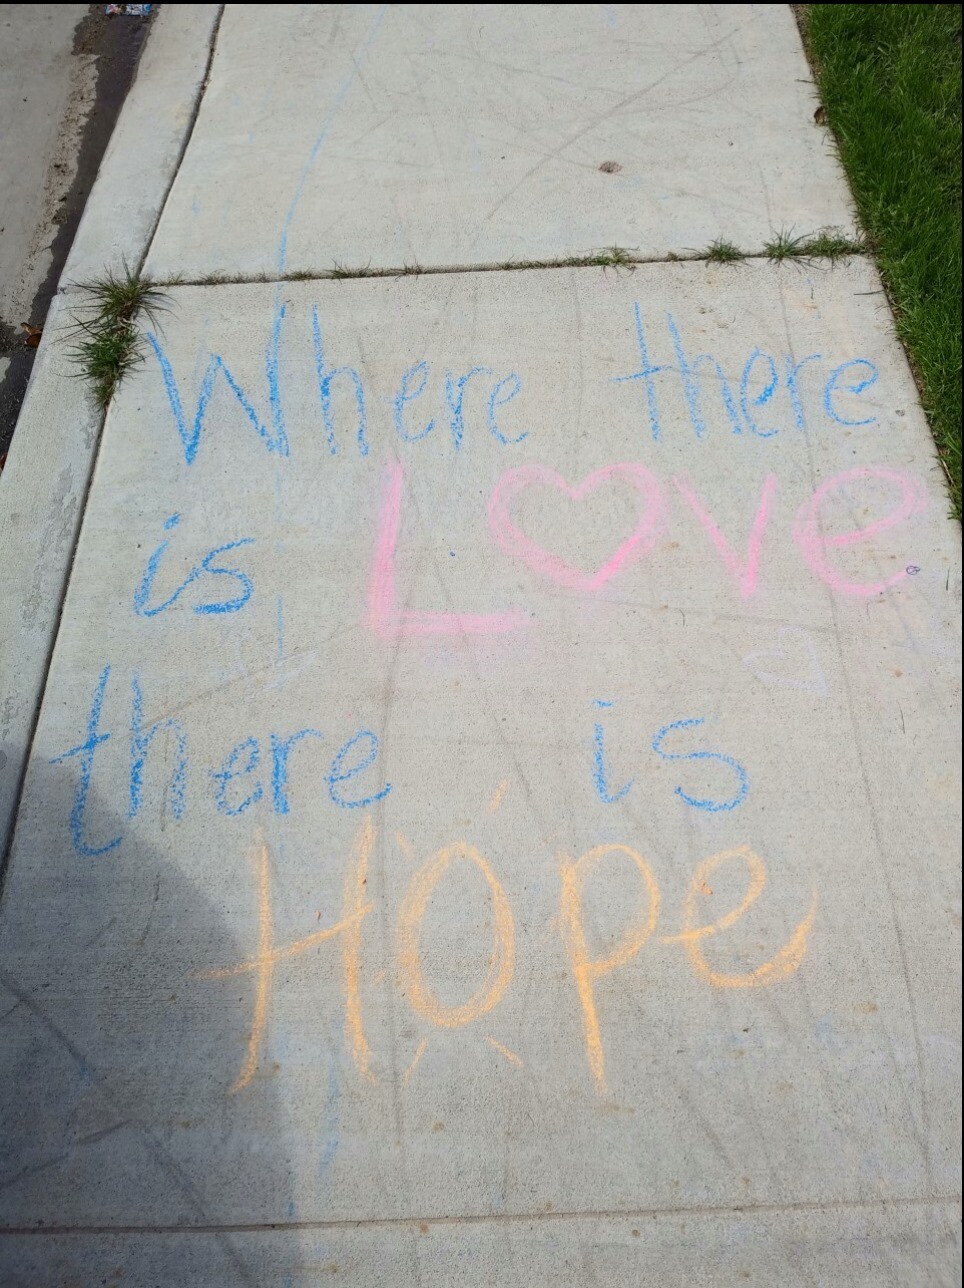 Where there
is Love
there is
Hope